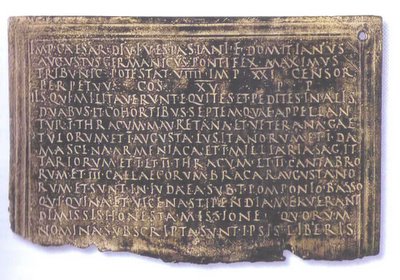 IMP CAESAR DIVI VESPASIANI F DOMITIANVS
AVGVSTVS GERMANICVS PONTIFEX MAXIMVS
TRIBVNIC POTESTAT VIIII IMP XXI CENSOR
PERPETVVS COS XV P P
IIS QVI MILITAVERVNT EQVITES ET PEDITES IN ALIS
DVABVS ET COHORTIBVS SEPTEM QVAE APPELLAN
TVR I THRACVM MAVRETANA ET VETERANA GAE
TVLORVM ET I AVGVSTA LVSITANORVM ET I DA
MASCENA ARMENIACA ET I MILLIARIA SAGIT
TARIORVM ET I ET II THRACVM ET II CANTABRO
RVM ET III CAELAECORVM BRACARAVGVSTANO
RVM ET SVNT IN IVDAEA SVB T POMPONIO BASSO
QVI QVINA ET VICENA STIPENDIA MERVERANT
DIMISSIS HONESTA MISSIONE QVORVM
NOMINA SVBSCRIPTA SVNT IPSIS LIBERIS